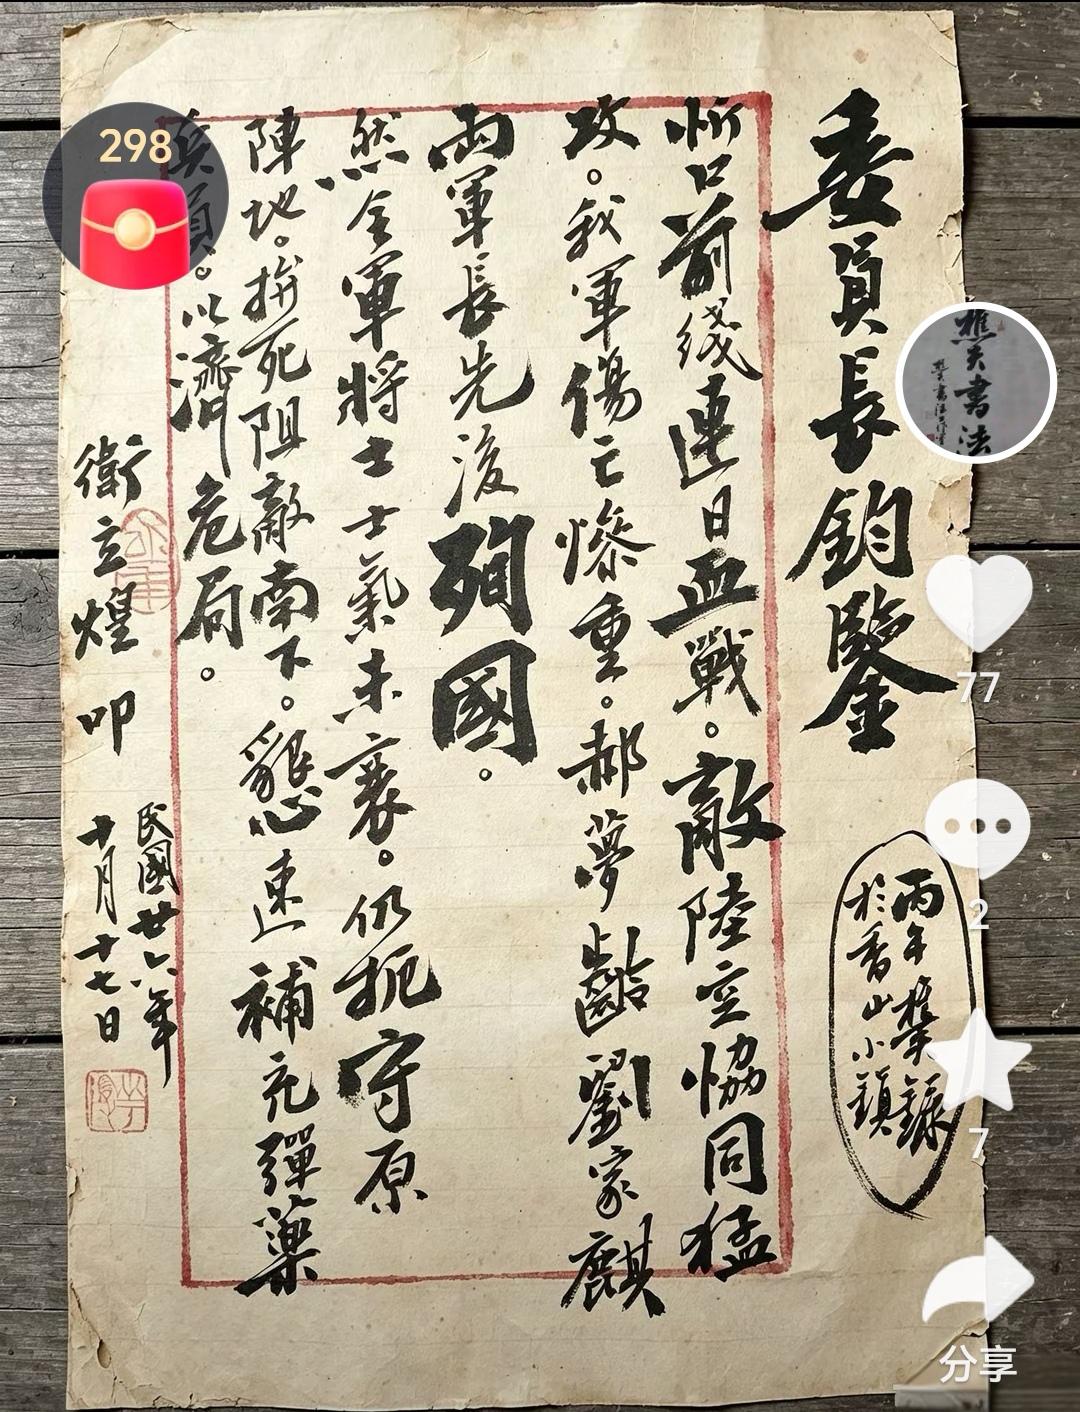 委員長鈞鑒
忻口前綫連日血戰。敵陸空協同猛
攻。我軍傷亡慘重。郝夢齡劉家麒
兩軍長先後殉國。
然全軍將士士氣未衰。仍扼守原
陣地。拚死阻敵南下。懇速補充彈藥
兵員。以濟危局。
衛立煌 叩
民國廿六年
十月十七日
丙午樵夫錄
於香山小鎮
298
樵夫書法
77
2
7
分享